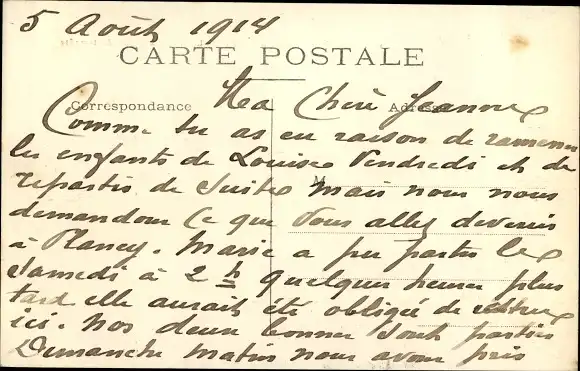 5 Août 1914
CARTE POSTALE
Ma Chère Jeanne
Correspondance Adresse
Comme tu as eu raison de ramener
les enfants de Louise Vendredi et de
repartir de suite mais nous nous
M
demandons ce que vous allez devenir
à Plancy. Marie a pu partir le
Samedi à 2 h quelques heures plus
tard elle aurait été obligée de rester
ici. Nos deux bonnes sont parties
Dimanche matin nous avons pris